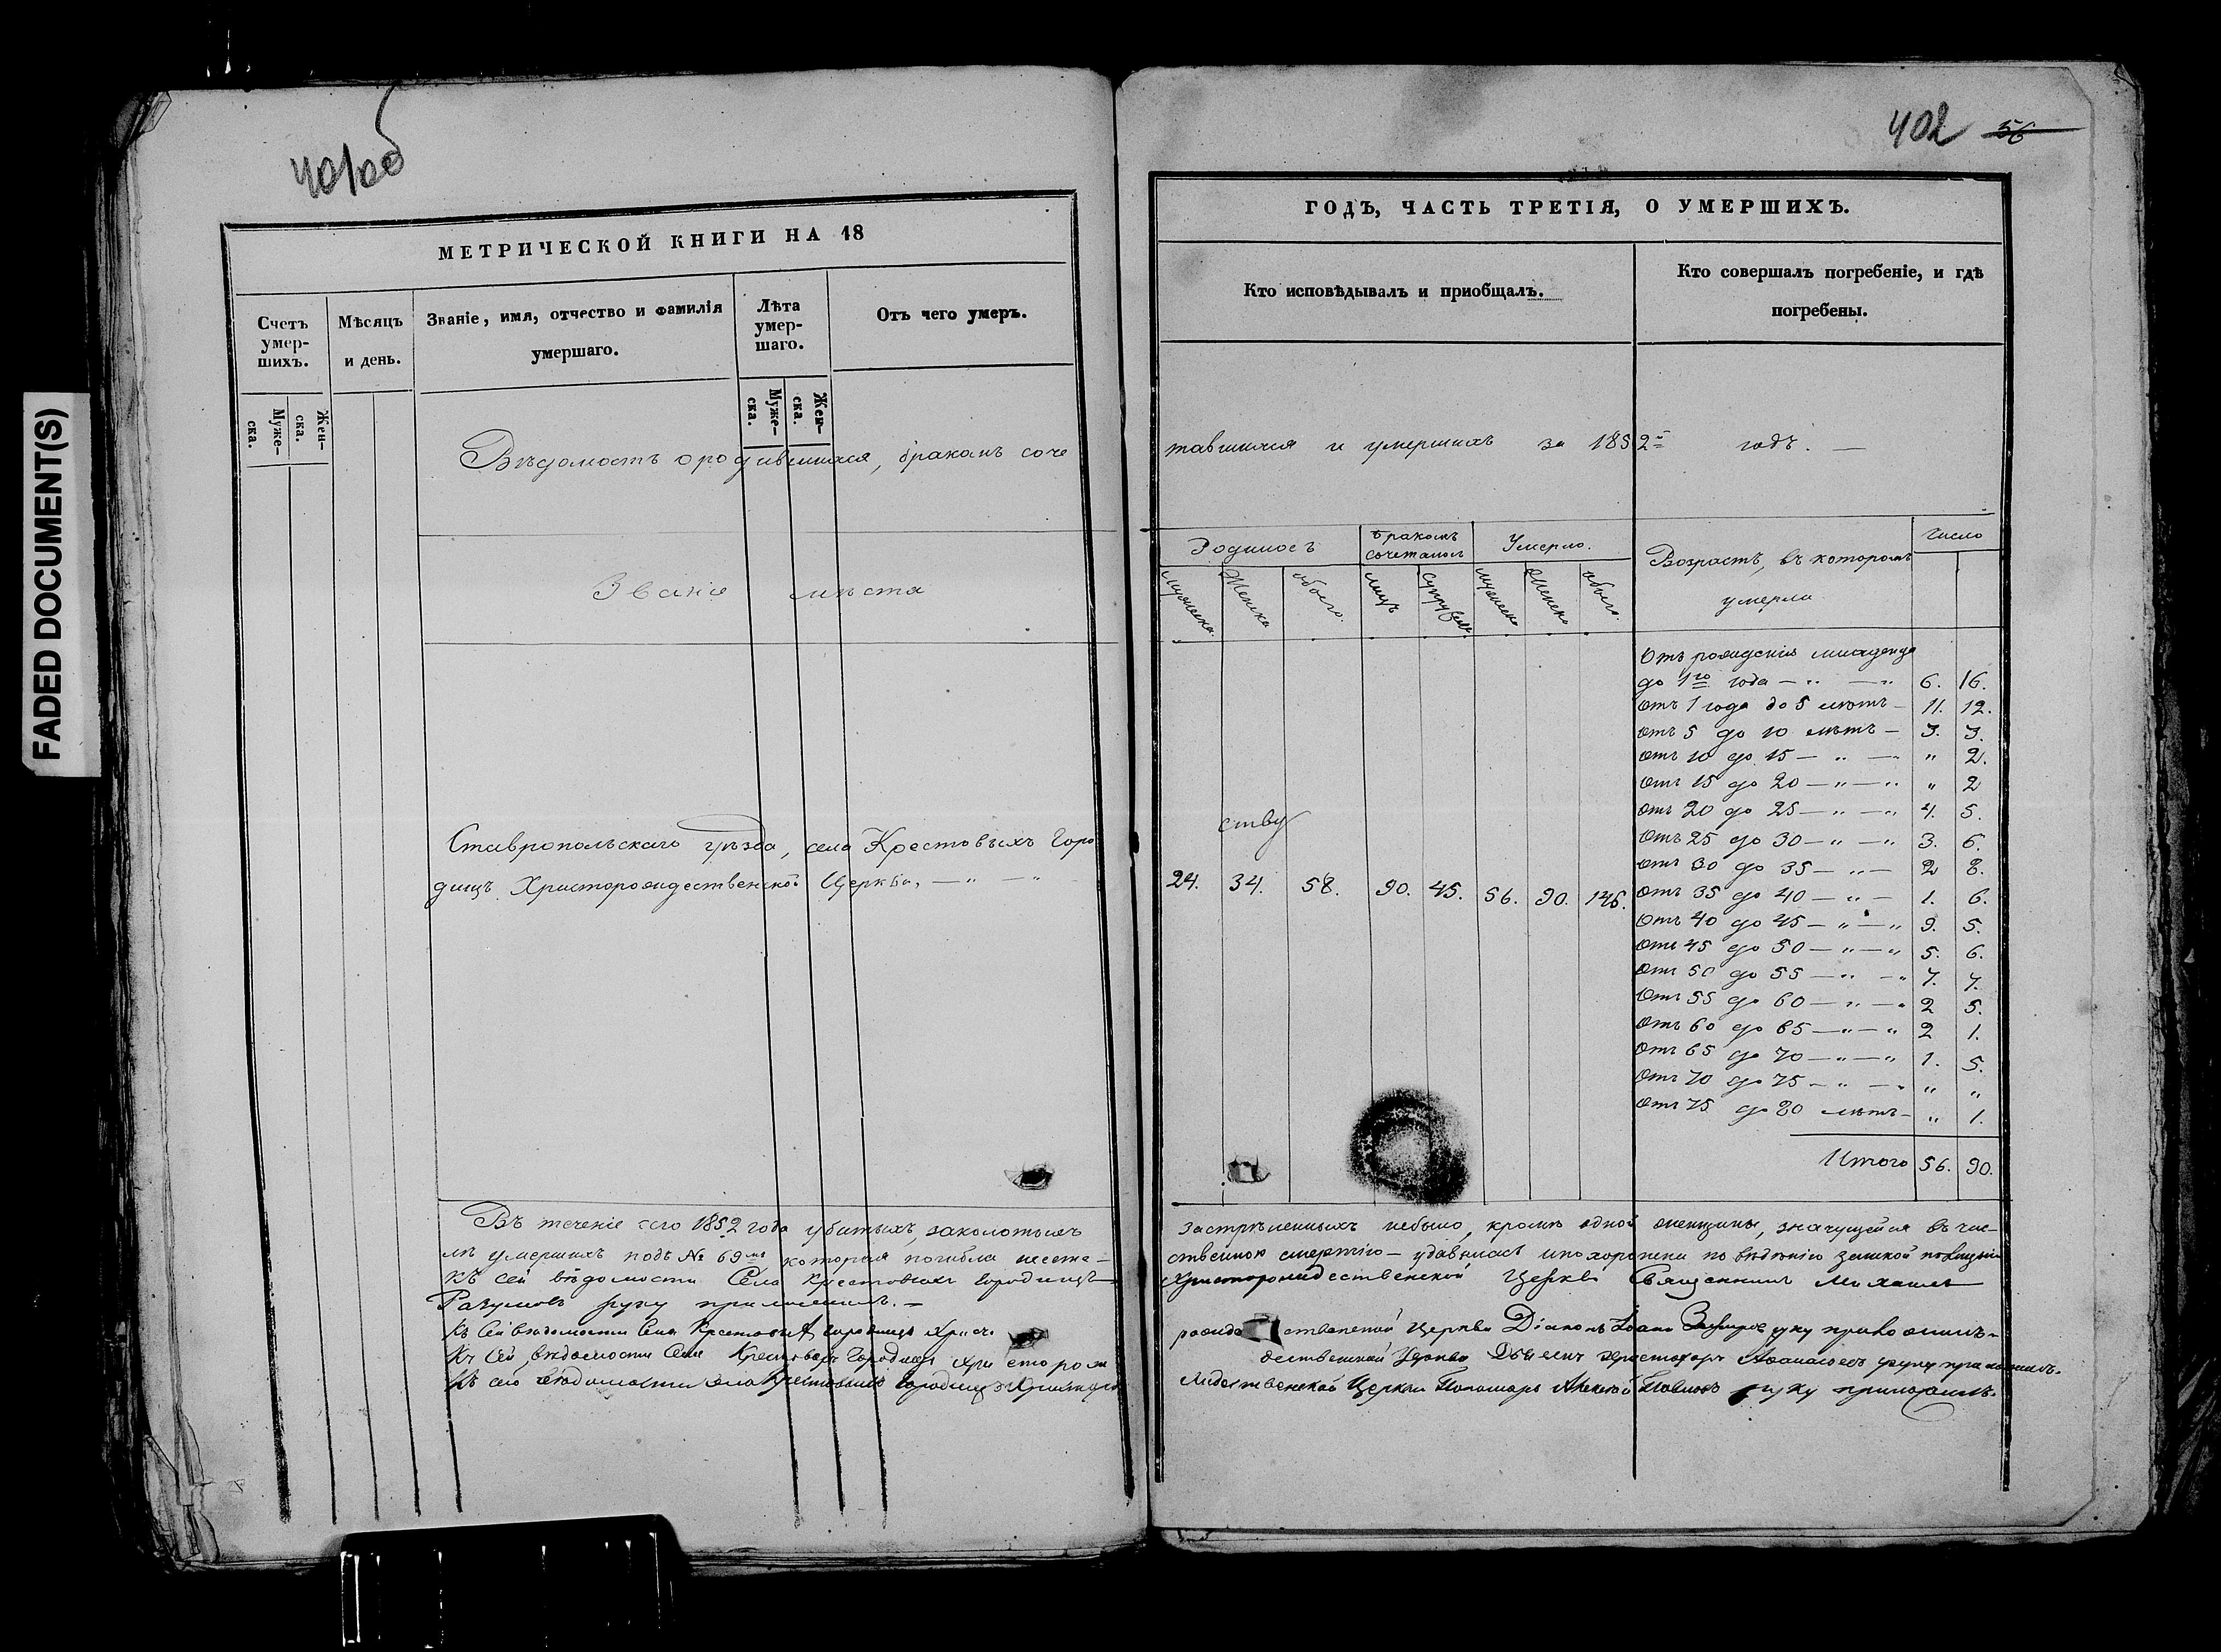 401об
402 56
МЕТРИЧЕСКОЙ КНИГИ НА 18
ГОДЪ, ЧАСТЬ ТРЕТІЯ, О УМЕРШИХЪ.
Счетъ умер-
шихъ.
Муже-
ска.
Жен-
ска.
Мѣсяцъ
и день.
Званіе, имя, отчество и фамилія
умершаго.
Лѣта
умер-
шаго.
Муже-
ска.
Жен-
ска.
Отъ чего умеръ.
Кто исповѣдывалъ и пріобщалъ.
Кто совершалъ погребеніе, и гдѣ
погребены.
Вѣдомость о родившихся, бракомъ соче
тавшихся и умершихъ за 1852й годъ. —
Званіе мѣста
Родилось
Бракомъ
сочеталось
Умерло.
Возрастъ, въ которомъ
умерли
Число
Мужеска. Женска обоего. лицъ супруж мужеска Женска обоего.
Ставропольскаго уѣзда, села Крестовыхъ Горо
дищъ Христорождественской Церкви, — " — "
ству
24. 34. 58. 90. 45. 56. 90. 146.
Отъ рожденія младенца
до 1го года — " — " 6. 16.
Отъ 1 года до 5 лѣтъ — 11. 12.
Отъ 5 до 10 лѣтъ — 3. 3.
Отъ 10 до 15 — " — " " 2.
Отъ 15 до 20 — " — " " 2
Отъ 20 до 25 — " — " 4. 5.
Отъ 25 до 30 — " — " 3. 6.
Отъ 30 до 35 — " — 2 8.
Отъ 35 до 40 — " — 1. 6.
Отъ 40 до 45 — " — " 9. 5.
Отъ 45 до 50 — " — " 5. 6.
Отъ 50 до 55 — " — " 7. 7.
Отъ 55 до 60 — " — " 2 5.
Отъ 60 до 65 — " — " 2 1.
Отъ 65 до 70 — " — " 1. 5.
Отъ 70 до 75 — " — " " "
Отъ 75 до 80 лѣтъ — " 1.
Итого 56. 90.
Въ теченіе сего 1852 года убитыхъ, заколотыхъ
застрѣленныхъ небыло, кромѣ одной женщины, значущейся въ чис-
лѣ умершихъ подъ № 69мъ которая погибла несче-
ственною смертію — удавилась и похоронена по вѣденію земской полиціи
Къ сей вѣдомости Села Крестовыхъ Городищъ
Христорождественской Церкви Священникъ Михаилъ
Разумовъ руку приложилъ. —
Къ сей вѣдомости Села Крестовыхъ Городищъ Христо
рожде ственской Церкви Діаконъ Іоаннъ руку приложилъ
Къ сей вѣдомости Села Крестовыхъ Городищъ Христорож
дественской Церкви Дьячекъ Христофоръ Аѳанасьевъ руку приложилъ.
Къ сей вѣдомости села Крестовыхъ Городищъ Христорож
дественской Церкви Пономарь Алексѣй Павловъ руку приложилъ.
FADED DOCUMENT(S)